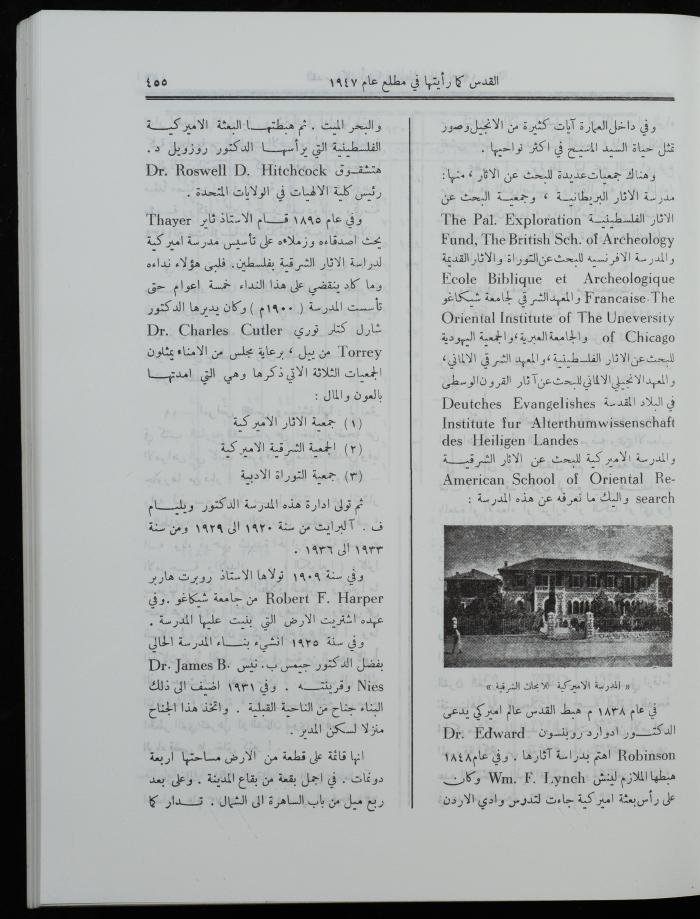 القدس كما رأيتها في مطلع عام ١٩٤٧
٤٥٥
وفي داخل العمارة آيات كثيرة من الانجيل وصور
تمثل حياة السيد المسيح في اكثر نواحيها .
وهناك جمعيات عديدة للبحث عن الاثار ، منها :
مدرسة الاثار البريطانية ، وجمعية البحث عن
الاثار الفلسطينية The Pal. Exploration
Fund, The British Sch. of Archeology
والمدرسة الافرنسيه للبحث عن التوراة والاثار القديمة
Ecole Biblique et Archeologique
Francaise والمعهد الشرقي لجامعة شيكاغو The
Oriental Institute of The Uneversity
of Chicago والجامعة العبرية ، والجمعية اليهودية
للبحث عن الاثار الفلسطينية ، والمعهد الشرقي الالماني ،
والمعهد الانجيلي الالماني للبحث عن آثار القرون الوسطى
في البلاد المقدسة Deutches Evangelishes
Institute fur Alterthumwissenschaft
des Heiligen Landes
والمدرسة الاميركية للبحث عن الاثار الشرقية
American School of Oriental Re-
search واليك ما نعرفه عن هذه المدرسة :
« المدرسة الاميركية للابحاث الشرقية »
في عام ١٨٣٨ م هبط القدس عالم اميركي يدعى
الدكتور ادوارد روبنسون Dr. Edward
Robinson اهتم بدراسة آثارها . وفي عام ١٨٤٨
هبطها الملازم لينش Wm. F. Lynch وكان
على رأس بعثة اميركية جاءت لتدرس وادي الاردن
والبحر الميت . ثم هبطتها البعثة الاميركية
الفلسطينية التي يرأسها الدكتور روزويل د .
هتشقوق Dr. Roswell D. Hitchcock
رئيس كلية الالهيات في الولايات المتحدة .
وفي عام ١٨٩٥ قام الاستاذ ثاير Thayer
يحث اصدقاءه وزملاءه على تأسيس مدرسة اميركية
لدراسة الاثار الشرقية بفلسطين . فلبى هؤلاء نداءه
وما كاد ينقضي على هذا النداء خمسة اعوام حتى
تأسست المدرسة ( ١٩٠٠م ) وكان يديرها الدكتور
شارل كتلر توري Dr. Charles Cutler
Torrey من ييل ، برعاية مجلس من الامناء يمثلون
الجمعيات الثلاثة الاتي ذكرها وهي التي امدتها
بالعون والمال :
(١) جمعية الاثار الاميركية
(٢) الجمعية الشرقية الاميركية
(٣) جمعية التوراة الادبية
ثم تولى ادارة هذه المدرسة الدكتور ويليام
ف . آلبرايت من سنة ١٩٢٠ الى ١٩٢٩ ومن سنة
١٩٣٣ الى ١٩٣٦ .
وفي سنة ١٩٠٩ تولاها الاستاذ روبرت هاربر
Robert F. Harper من جامعة شيكاغو . وفي
عهده اشتريت الارض التي بنيت عليها المدرسة .
وفي سنة ١٩٢٥ انشيء بناء المدرسة الحالي
بفضل الدكتور جيمس ب . نيس Dr. James B.
Nies وقرينته . وفي ١٩٣١ اضيف الى ذلك
البناء جناح من الناحية القبلية . واتخذ هذا الجناح
منزلا لسكن المدير .
انها قائمة على قطعة من الارض مساحتها اربعة
دونمات . في اجمل بقعة من بقاع المدينة . وعلى بعد
ربع ميل من باب الساهرة الى الشمال . تدار كما